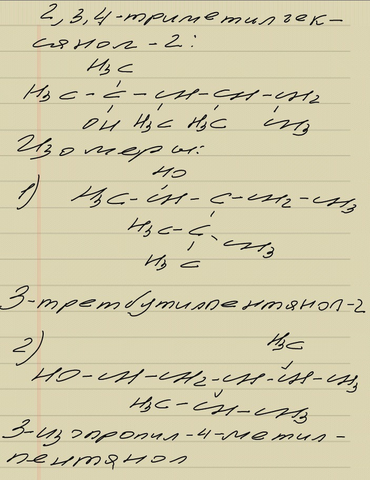 2,3,4-триметилгек-
санол-2:
H₃C
H₃C - C - CH - CH - CH₂
OH H₃C H₃C CH₃
Изомеры:
HO
1) H₃C - CH - C - CH₂ - CH₃
H₃C - C - CH₃
H₃C
3-третбутилпентанол-2
2) H₃C
HO - CH - CH₂ - CH - CH - CH₃
H₃C - CH - CH₃
3-изопропил-4-метил-
пентанол